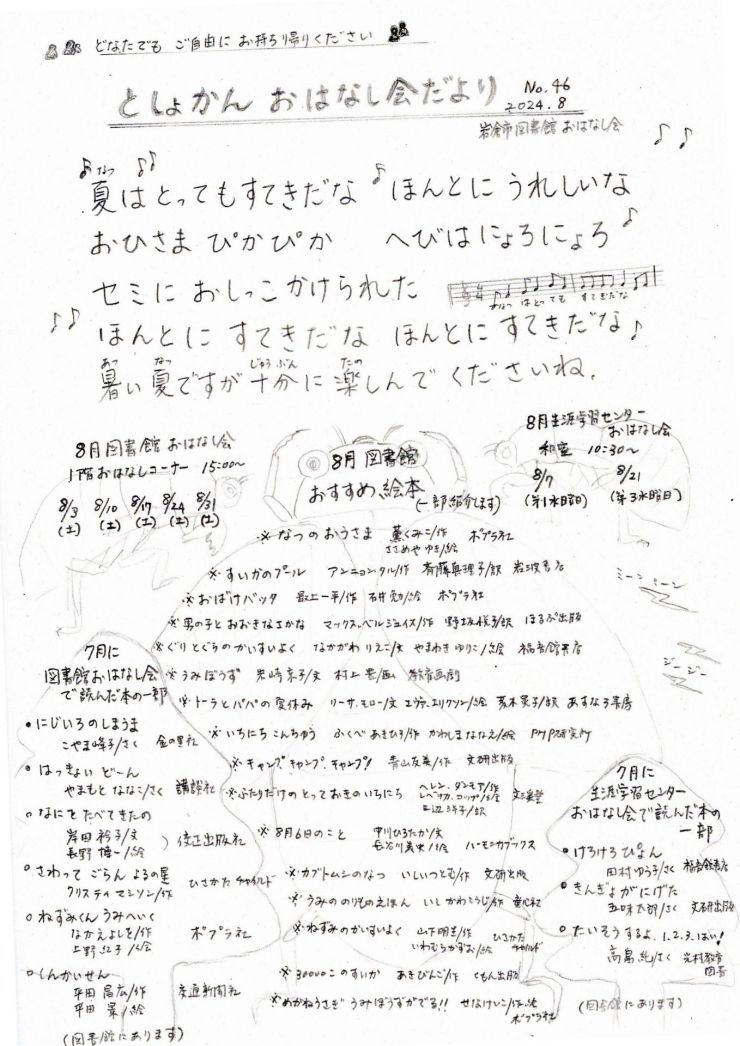 どなたでも ご自由に お持ち帰りください
としょかん おはなし会だより
No.46
2024.8
岩倉市図書館 おはなし会
なつ
夏はとってもすてきだな ほんとに うれしいな
おひさま ぴかぴか へびはにょろにょろ
セミに おしっこ かけられた
なつ はとっても すてきだな
ほんとに すてきだな ほんとに すてきだな
あつ なつ じゅうぶん たの
暑い夏ですが十分に楽しんでくださいね.
8月図書館 おはなし会
1階おはなしコーナー 15:00〜
8/3 8/10 8/17 8/24 8/31
(土) (土) (土) (土) (土)
8月 図書館
おすすめ絵本
(一部紹介します)
8月生涯学習センター
おはなし会
和室 10:30〜
8/7 8/21
(第1水曜日) (第3水曜日)
※なつのおうさま 薫くみこ/作 ポプラ社
ささめや ゆき/絵
※すいかのプール アンニョンタル/作 斎藤真理子/訳 岩波書店
※おばけバッタ 最上一平/作 石井勉/絵 ポプラ社
※男の子とおおきなさかな マックス・ベルジュイス/作 野坂悦子/訳 ほるぷ出版
※ぐりとぐらのかいすいよく なかがわ りえこ/文 やまわき ゆりこ/絵 福音館書店
※うみぼうず 岩崎京子/文 村上豊/画 教育画劇
※トーラとパパの夏休み リーサ・モロー/文 エヴァ・エリクソン/絵 菱木晃子/訳 あすなろ書房
※いちにち こんちゅう ふくべ あきひろ/作 かわしま ななえ/絵 PHP研究所
※キャンプ、キャンプ、キャンプ! 青山友美/作 文研出版
※ふたりだけのとっておきのいちにち ヘレン・ダンモア/作 文溪堂
レベッカ・コッブ/絵
三辺律子/訳
※8月6日のこと 中川ひろたか/文
長谷川義史/絵 ハモニカブックス
※カブトムシのなつ いしいつとむ/作 文研出版
※うみののりものえほん いしかわこうじ/作 童心社
※ねずみのかいすいよく 山下明生/作 ひさかた
いわむらかずお/絵 チャイルド
※30000このすいか あきびんご/作 くもん出版
※めがねうさぎ うみぼうずがでる!! せなけいこ/作・絵
ポプラ社
ミーン ミーン
ジージー
7月に
図書館おはなし会
で読んだ本の一部
にじいろのしまうま
こやま峰子/さく 金の星社
はっきょい どーん
やまもと ななこ/さく 講談社
なにをたべてきたの
岸田衿子/文
長野博一/絵 佼正出版社
さわって ごらん よるの星
クリスティ マシソン/作 ひさかた チャイルド
ねずみくん うみへいく
なかえよしを/作
上野紀子/絵 ポプラ社
しんかいせん
平田昌広/作 交通新聞社
平田景/絵
(図書館にあります)
7月に
生涯学習センター
おはなし会で読んだ本の
一部
けろけろぴょん
田村ゆう子/さく 福音館書店
きんぎょがにげた
五味太郎/さく 文研出版
たいそうするよ、1.2.3.はい!
高畠純/さく 光村教育
図書
(図書館にあります)